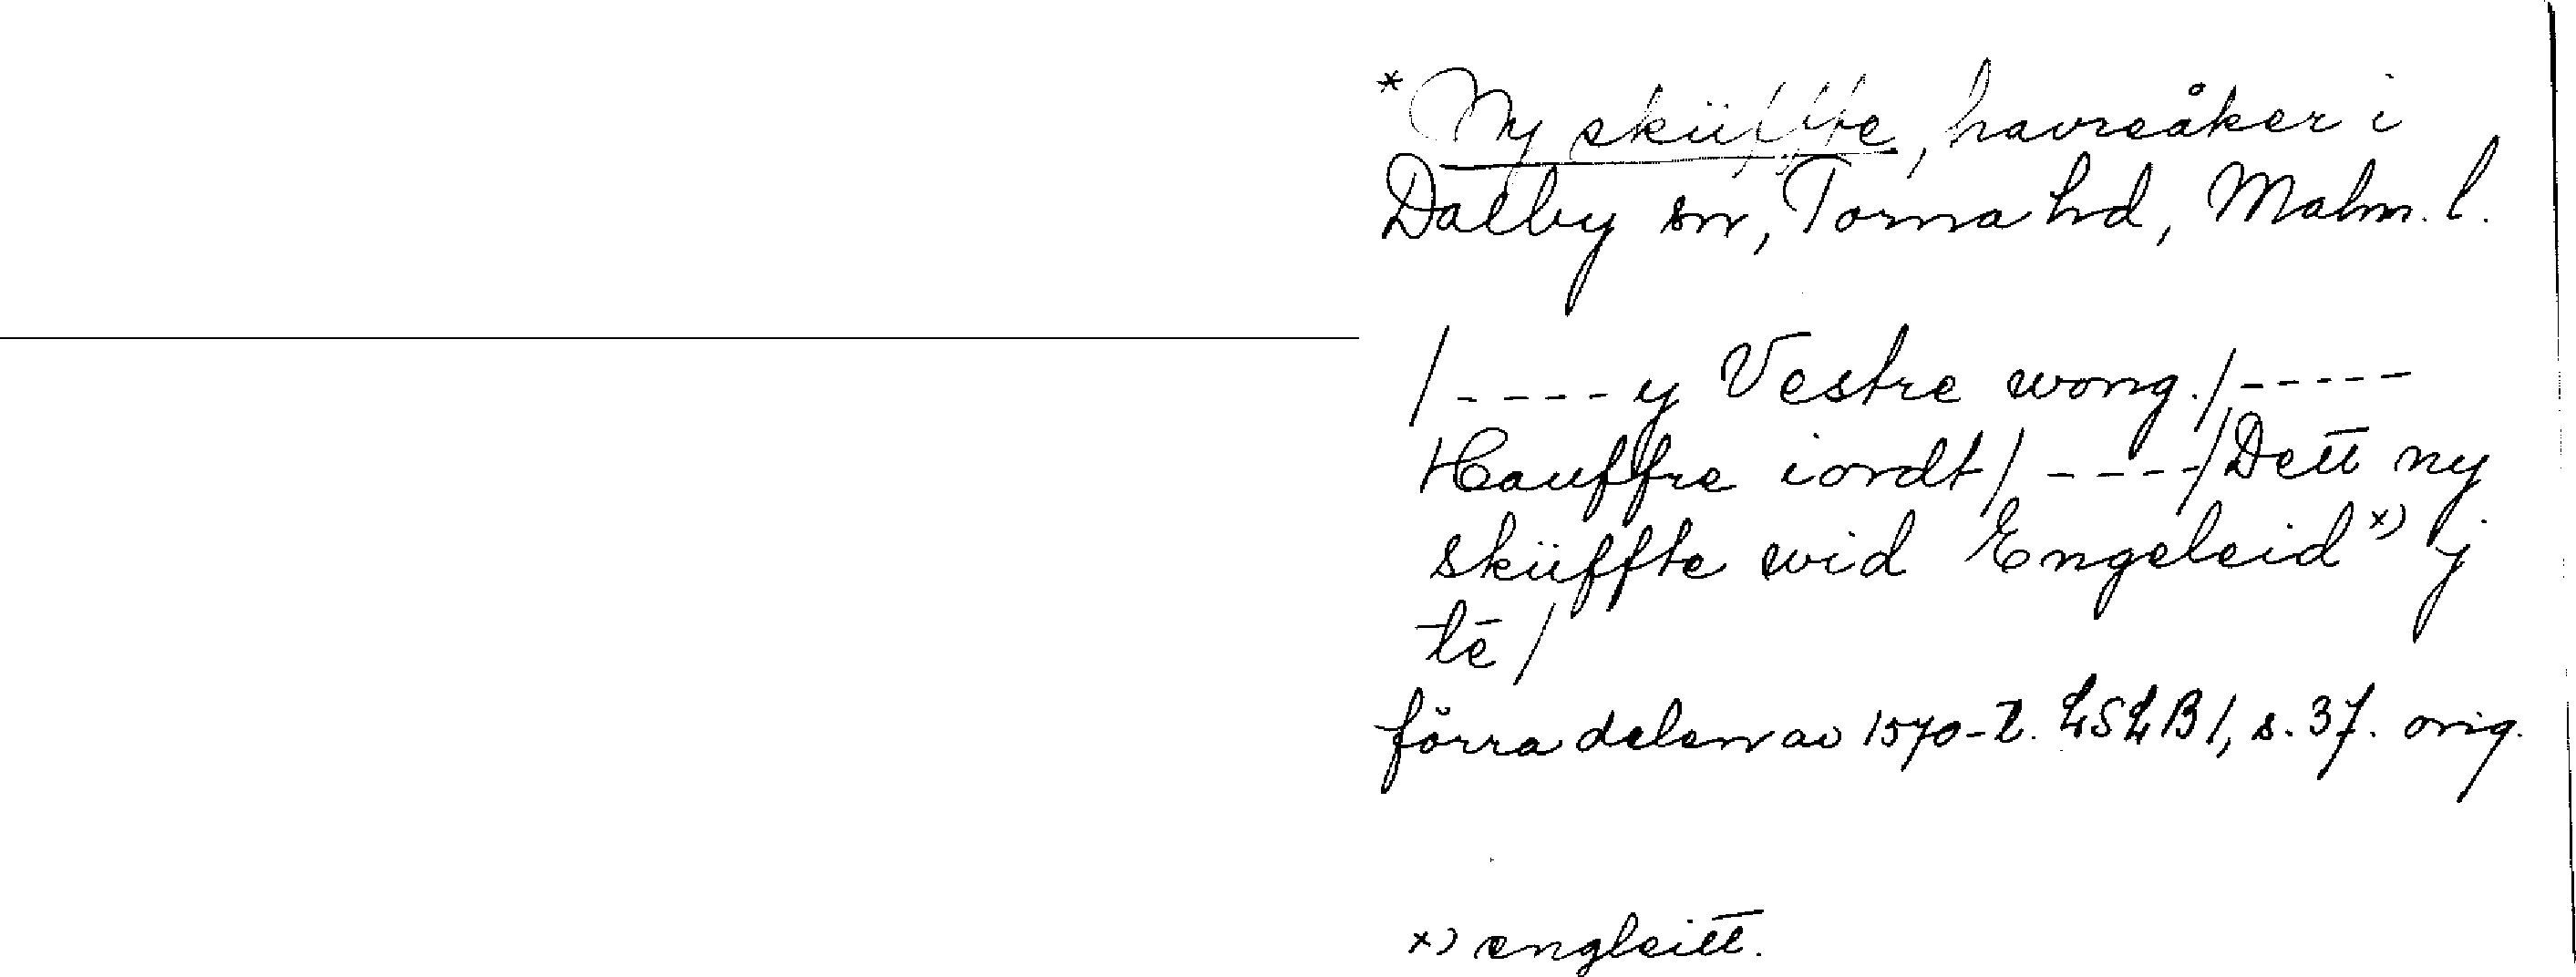 * Ny sküffte, havreåker i
Dalby sn, Torna hd, Malm. l.
/ - - - - y Vestre wong./ - - - - -
Hauffre iordt / - - - - / Dett ny
sküffte wid Engeleid x) ÿ
tē /
förra delen av 1570-t. LSLB 1, s. 37. orig.
x) engleitt.